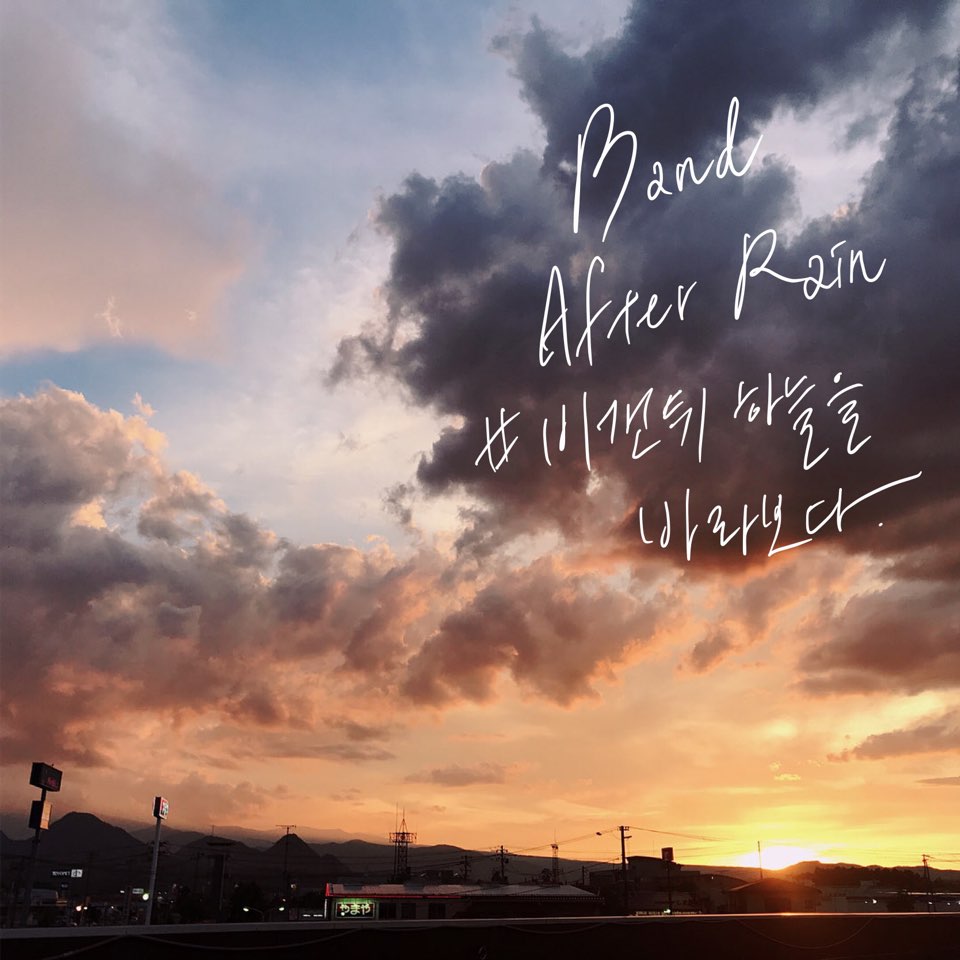 Band
After Rain
#비갠뒤 하늘을
바라보다.
やまや